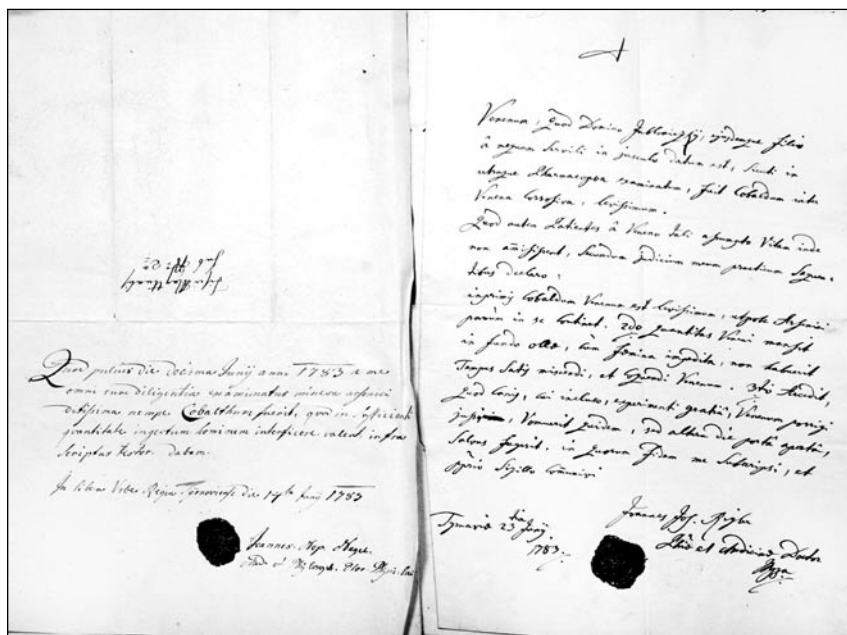 Quod pulvis die decima Junij anni 1783 a me
omni cum diligentia examinatus minera arsenici
ditissima nempe Cobalthum fuerit, quae in sufficienti
quantitate ingestum hominem interficere valeat, infra
scriptus testor. datum.
In libera Urbe Regia Tyrnaviensi die 14ta Junij 1783
Joannes Nep.
Venenum, quod Domino ejusdemque filio
à nequam Servili in jusculo datum est, sicuti in
utraque Pharmacopaea examinatum, fuit Cobaldum inter
Venena Corrosiva, levissimum.
Quod autem Patientes à Veneno tali assumpto Vitam inde
non amisissent, Secundum judicium meum practicum Sequen-
tibus declaro:
inprimis Cobaldum Venenum est levissimum, utpote Arsenici
parùm in se continet. 2do quantitas Veneni mansit
in fundo ollae, cùm femina impedita, non habuerit
Tempus Satis miscendi, et Venenum. 3tiò accedit,
quod canis, cui incluso, experimenti gratiâ, Venenum porrigi
jusseram, Vomuerit quidem, sed altera die portâ apertâ,
Salvus fugerit. in quorum Fidem me Subscripsi, et
Sigillo
Tyrnaviae 23tia Junij
1783.
Joannes Jos.
et Medicinae Doctor